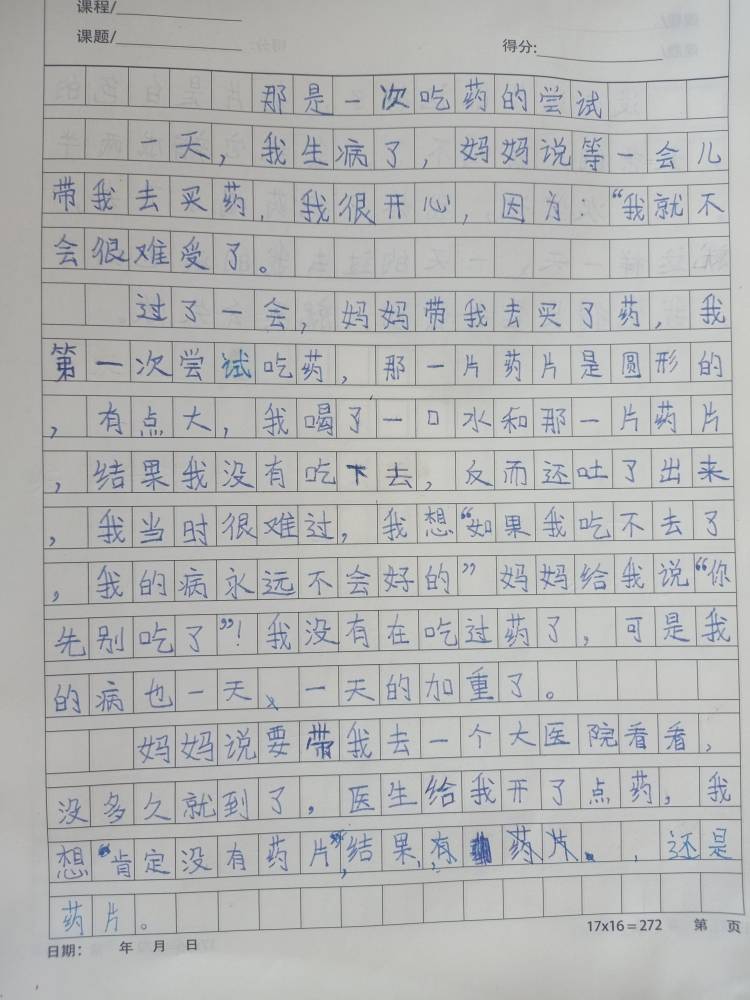 课程/
课题/
得分:
那是一次吃药的尝试
一天，我生病了，妈妈说等一会儿
带我去买药，我很开心，因为：“我就不
会很难受了。
过了一会，妈妈带我去买了药，我
第一次尝试吃药，那一片药片是圆形的
，有点大，我喝了一口水和那一片药片
，结果我没有吃下去，反而还吐了出来
，我当时很难过，我想“如果我吃不去了
，我的病永远不会好的”妈妈给我说“你
先别吃了”！我没有在吃过药了，可是我
的病也一天、一天的加重了。
妈妈说要带我去一个大医院看看，
没多久就到了，医生给我开了点药，我
想“肯定没有药片”，结果，有药片。，还是
药片。
日期： 年 月 日
17x16=272 第 页